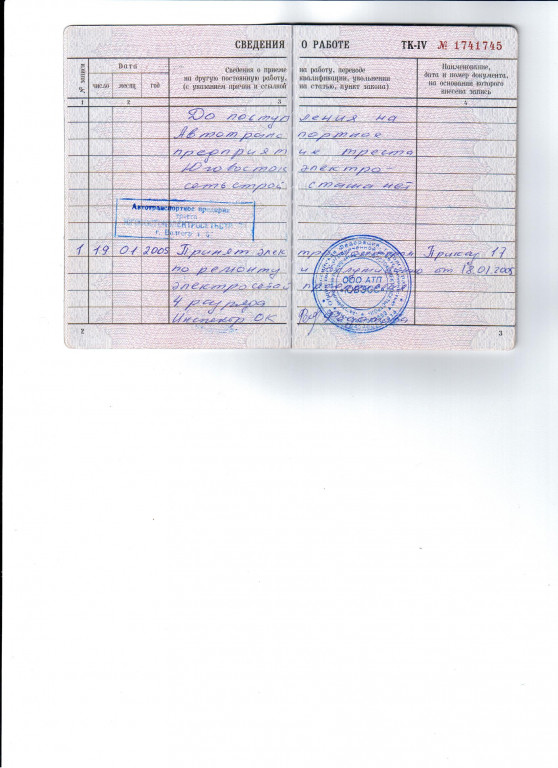 СВЕДЕНИЯ О РАБОТЕ ТК-IV № 1741745
№ записи
Дата
число месяц год
Сведения о приеме на работу, переводе
на другую постоянную работу, квалификации, увольнении
(с указанием причин и ссылкой на статью, пункт закона)
Наименование,
дата и номер документа,
на основании которого
внесена запись
1 2 3 4
До поступления на
Автотранспортное
предприятие треста
Юговостокэлектро-
сетьстрой стажа нет
Автотранспортное предприя
треста
1 19 01 2005 Принят электромонтером Приказ 17
по ремонту и от 18.01.2005
4 разряда
Инспектор ОК
ООО АТП
2 3